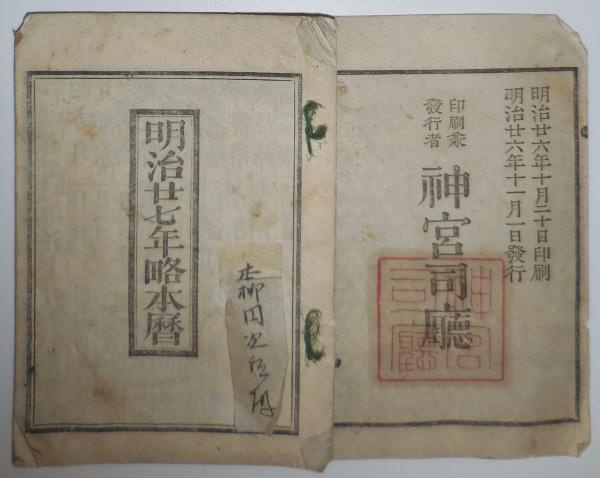 明治廿六年十月二十日印刷
明治廿六年十一月一日發行
印刷兼
發行者
神宮司廳
神宮
司廳
明治廿七年略本曆